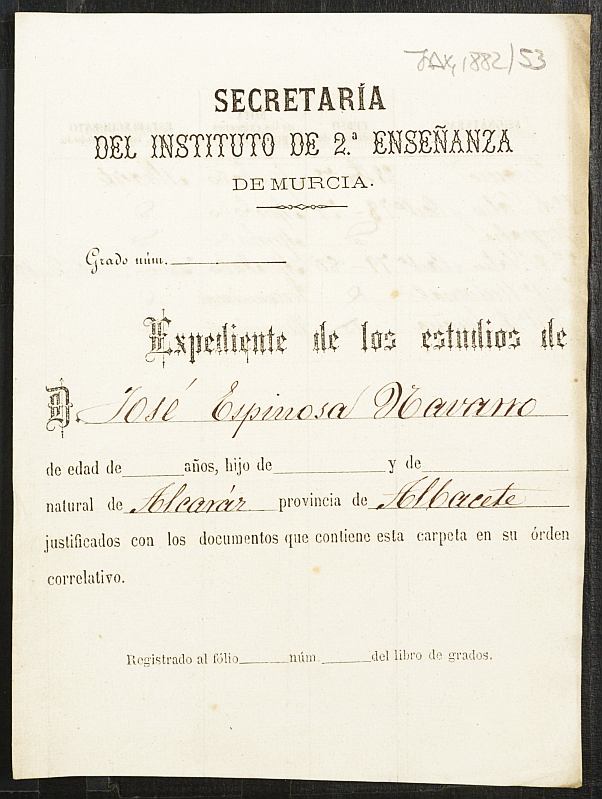 JAX, 1882/53
SECRETARÍA
DEL INSTITUTO DE 2.ª ENSEÑANZA
DE MURCIA.
Grado núm.
Expediente de los estudios de
D. José Espinosa Navarro
de edad de años, hijo de y de
natural de Alcaráz provincia de Albacete
justificados con los documentos que contiene esta carpeta en su órden
correlativo.
Registrado al fólio núm. del libro de grados.